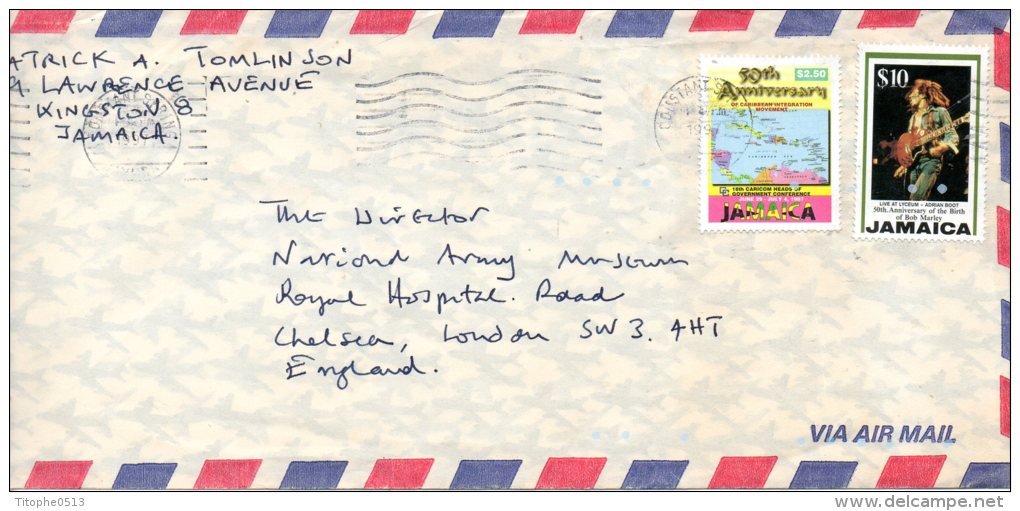 ATRICK A. TOMLINSON
9. LAWRENCE AVENUE
KINGSTON 8
JAMAICA.
CONSTANT SPRING
1997
50th
Anniversary
$2.50
OF CARIBBEAN INTEGRATION
MOVEMENT
CARIBBEAN SEA
18th CARICOM HEADS OF
GOVERNMENT CONFERENCE
JUNE 29 - JULY 4, 1997
JAMAICA
$10
LIVE AT LYCEUM - ADRIAN BOOT
50th. Anniversary of the Birth
of Bob Marley
JAMAICA
The Director
National Army Museum
Royal Hospital Road
Chelsea, London SW3. 4HT
England.
VIA AIR MAIL
Titophe0513
delcampe.net